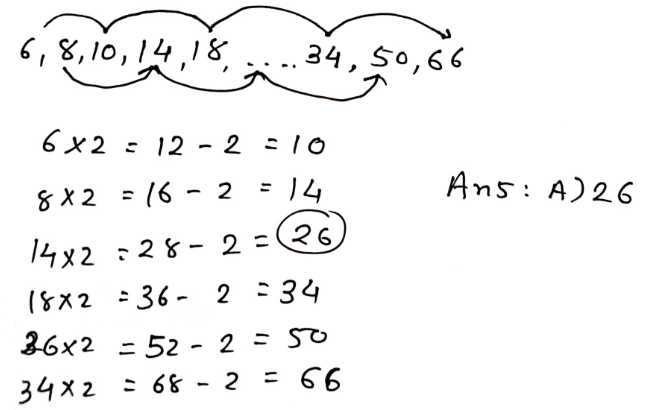 6, 8, 10, 14, 18, .... 34, 50, 66
6 x 2 = 12 - 2 = 10
8 x 2 = 16 - 2 = 14
Ans: A) 26
14 x 2 = 28 - 2 = 26
18 x 2 = 36 - 2 = 34
26 x 2 = 52 - 2 = 50
34 x 2 = 68 - 2 = 66